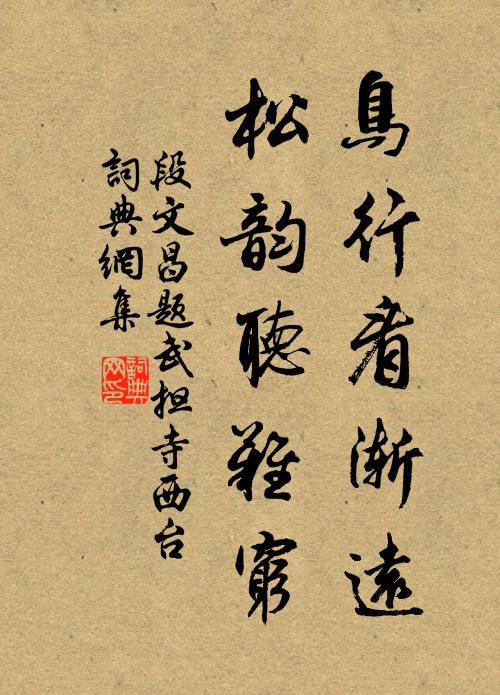 鳥行看漸遠
松韵聽難窮
段文昌題武担寺西台
詞典網集
詞典網印